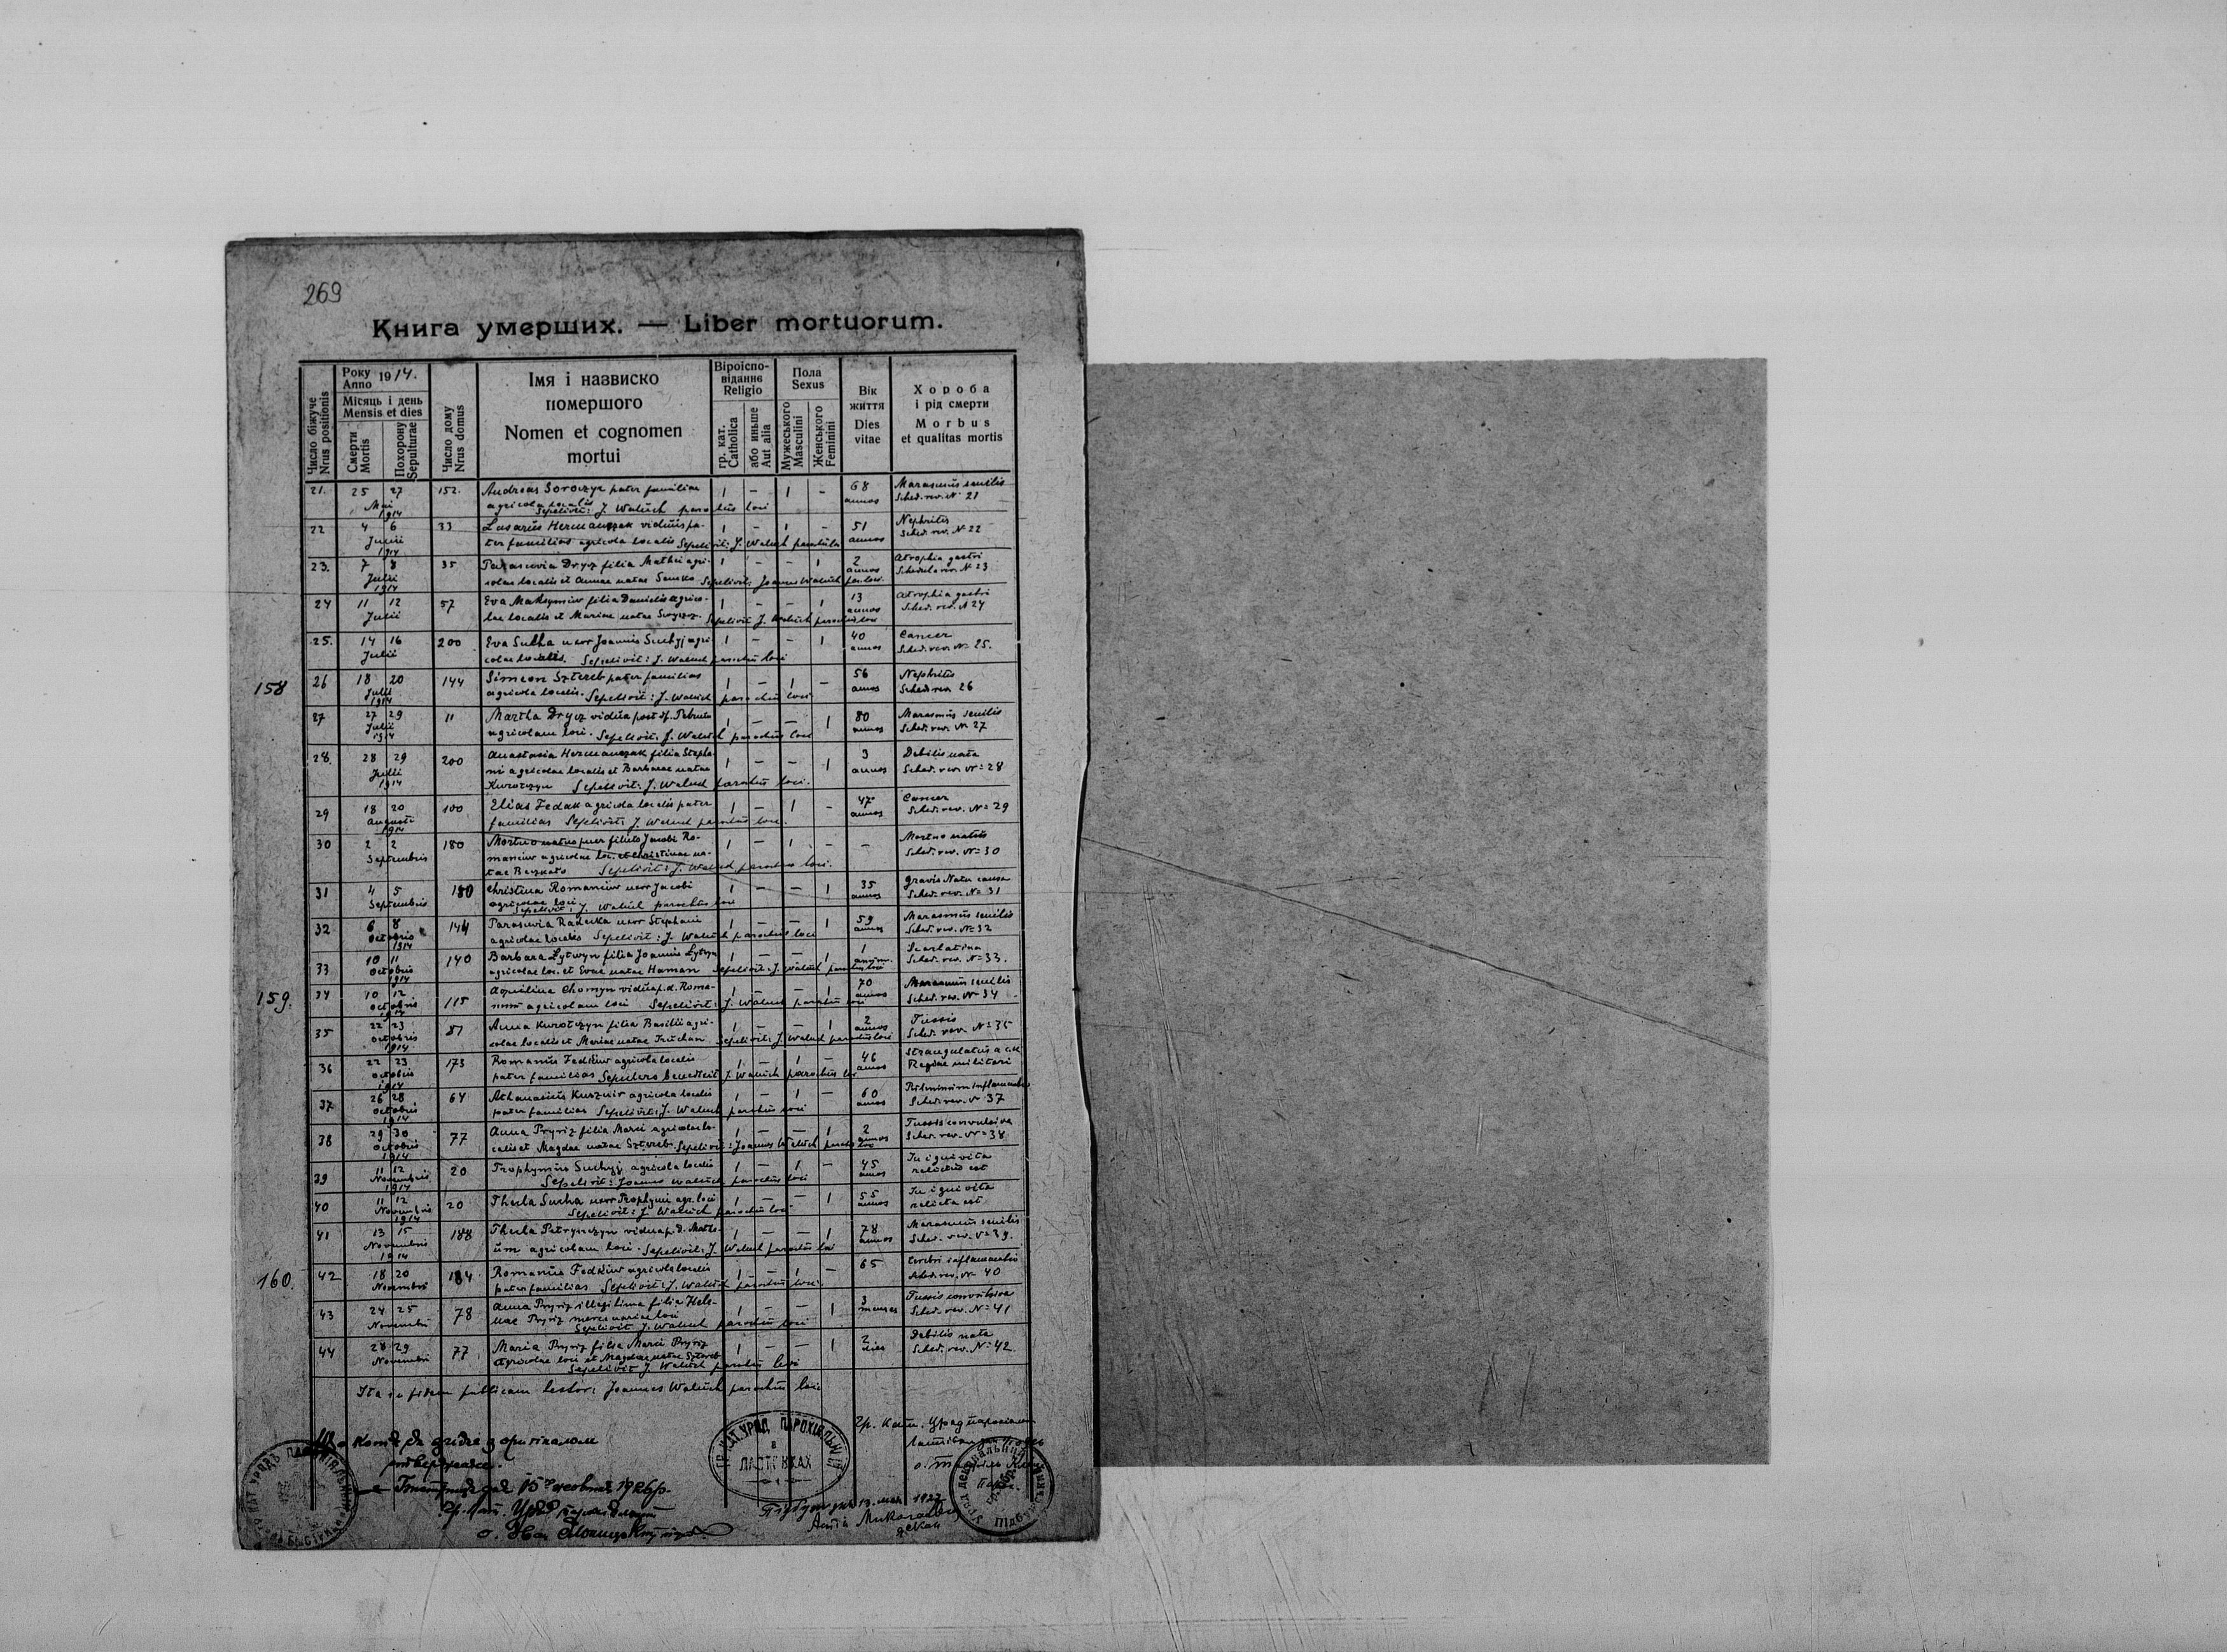 269
Книга умерших. — Liber mortuorum.
Число біжуче Nrus positionis
Року Anno 1914.
Місяць і день Mensis et dies
Смерти Mortis
Похорону Sepulturae
Число дому Nrus domus
Імя і назвиско
помершого
Nomen et cognomen
mortui
Віроіспо-
віданнє
Religio
гр. кат. Catholica
або иньше Aut alia
Пола
Sexus
Мужеського Masculini
Женського Feminini
Вік
життя
Dies
vitae
Хороба
і рід смерти
Morbus
et qualitas mortis
21. 25 27 152. Andreas Soroczyc pater familiae 1 – 1 – 68 Marasmus senilis
Mai 1914 agricola localis Sepelivit: J. Waluch parochus loci annos Sched. rev. N 21
22 4 6 33 Lasarus Hermanczak viduus pa- 1 – 1 – 51 Nephritis
Junii 1914 ter familias agricola localis Sepelivit: J. Waluch parochus annos Sched. rev. N 22
23. 7 8 35 Parascevia Drycz filia Mathei agri- 1 – – 1 2 Atrophia gastri
Julii 1914 colae localis et Annae natae Senko Sepelivit: Joannes Waluch par. loci annos Schedula rev. N 23
24 11 12 57 Eva Maksymiw filia Danielis agrico- 1 – – 1 13 Atrophia gastri
Julii lae localis et Mariae natae Sepelivit J. Waluch parochus loci annos Sched. rev. N 24
25. 14 16 200 Eva Sucha uxor Joannis Suchyj agri- 1 – – 1 40 Cancer
Julii colae localis. Sepelivit: J. Waluch parochus loci annos Sched. rev. N= 25.
158 26 18 20 144 Simeon Sztereb pater familias 1 – 1 – 56 Nephritis
Julii 1914 agricola localis. Sepelivit: J. Waluch parochus loci annos Sched rev. 26
27 27 29 11 Martha Drycz vidua post df. Petrum 1 – – 1 80 Marasmus senilis
Julii 1914 agricolam loci. Sepelivit: J. Waluch parochus loci annos Sched. rev. N 27
28. 28 29 200 Anastasia Hermanczak filia Stepha- 1 – – 1 3 Debilis nata
Julii 1914 ni agricolae localis et Barbarae natae annos Sched. rev. N= 28
Kurotczyn Sepelivit: J. Waluch parochus loci.
29 18 20 100 Elias Fedak agricola localis pater 1 – 1 – 47 Cancer
Augusti 1914 familias Sepelivit: J. Waluch parochus loci. annos Sched. rev. N= 29
30 2 2 180 Mortuo natus puer filius Jacobi Ro- 1 – 1 – – Mortuo natus
Septembris maniw agricolae loc. et Christinae na- Sched. rev. N= 30
tae Sepelivit: J. Waluch parochus loci.
31 4 5 180 Christina Romaniw uxor Jacobi 1 – – 1 35 gravis Natu causa
Septembris agricolae loci Sepelivit: J. Waluch parochus loci annos Sched. rev. N= 31
32 6 8 144 Parascevia Radecka uxor Stephani 1 – – 1 59 Marasmus senilis
Octobris 1914 agricolae localis Sepelivit: J. Waluch parochus loci annos Sched. rev. N= 32
33 10 11 140 Barbara Lytwyn filia Joannis Lytwyn 1 – – 1 1 Scarlatina
Octobris 1914 agricolae loc. et Evae natae Human Sepelivit: J. Waluch parochus loci Sched. rev. N= 33.
159. 34 10 12 115 Aquilina Chomyn vidua p.d. Roma- 1 – – 1 70 Marasmus senilis
Octobris 1914 num agricolam loci Sepelivit: J. Waluch parochus loci annos Sched. rev. N= 34
35 22 23 81 Anna Kurotczyn filia Basilii agri- 1 – – 1 2 Tussis
Octobris 1914 colae localis et Mariae natae Truchan Sepelivit: J. Waluch parochus loci annos Sched. rev. N= 35
36 22 23 173 Romanus Fedkiw agricola localis 1 – 1 – 46 Strangulatus a c. et
Octobris 1914 pater familias J. Waluch parochus loci annos Regiae militari
37 26 28 64 Athanasius Kusznir agricola localis 1 – 1 – 60 Pulmonum inflammatio
Octobris 1914 pater familias Sepelivit: J. Waluch parochus loci annos Sched. rev. N 37
38 29 30 77 Anna Pryriz filia Marci agricolae lo- 1 – – 1 2 Tussis convulsiva
Octobris 1914 calis et Magdae natae Sztereb. Sepelivit: Joannes Waluch parochus loci annos Sched. rev. N= 38
39 11 12 20 Trophymus Suchyj agricola localis 1 – 1 – 45 In igni vita
Novembris 1914 Sepelivit: Joannes Waluch parochus loci annos relictus est
40 11 12 20 Thecla Sucha uxor Trophymi agr. loci 1 – – 1 55 In igni vita
Novembris 1914 Sepelivit: J. Waluch parochus loci annos relicta est
41 13 15 188 Thecla Petryszczyn vidua p. d. Mathe- 1 – – 1 78 Marasmus senilis
Novembris 1914 um agricolam loci. Sepelivit: J. Waluch parochus loci annos Sched. rev. N= 39.
160. 42 18 20 184 Romanus Fedkiw agricola localis 1 – 1 – 65 Cerebri inflammatio
Novembri pater familias Sepelivit: J. Waluch parochus loci. Sched. rev. N= 40
43 24 25 78 Anna Pryriz illegitima filia Hele- 1 – – 1 3 Tussis convulsiva
Novembri nae Pryriz mercenariae loci menses Sched. rev. N= 41
Sepelivit J. Waluch parochus loci
44 28 29 77 Maria Pryriz filia Marci Pryriz 1 – – 1 2 Debilis nata
Novembri agricolae loci et Magdae natae Sztereb dies Sched. rev. N= 42.
Sepelivit J. Waluch parochus loci
Ita in fidem publicam testor: Joannes Waluch parochus loci
Що копія ся згідна з оригіналом
потверджаєсь.
15го жовтня 1926 р.
Гр. кат. Уряд парохіяльний
о. Іван
ГР. КАТ. УРЯД ПАРОХІЯЛЬНИЙ
в
ЛАСТІВКАХ
Гр. Кат. Уряд парохіяльний
13. мая 1927
декан